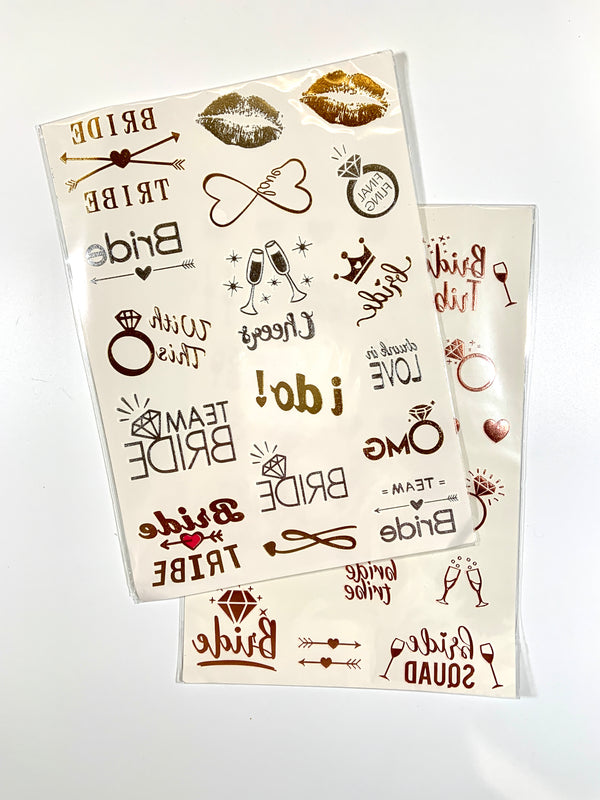 BRIDE
TRIBE
love
FINAL
FLING
Bride
bride
Cheers
With
This
drunk in
LOVE
i do!
TEAM
BRIDE
OMG
BRIDE
= TEAM =
Bride
Bride
TRIBE
Bride
Tribe
bride
tribe
Bride
bride
SQUAD